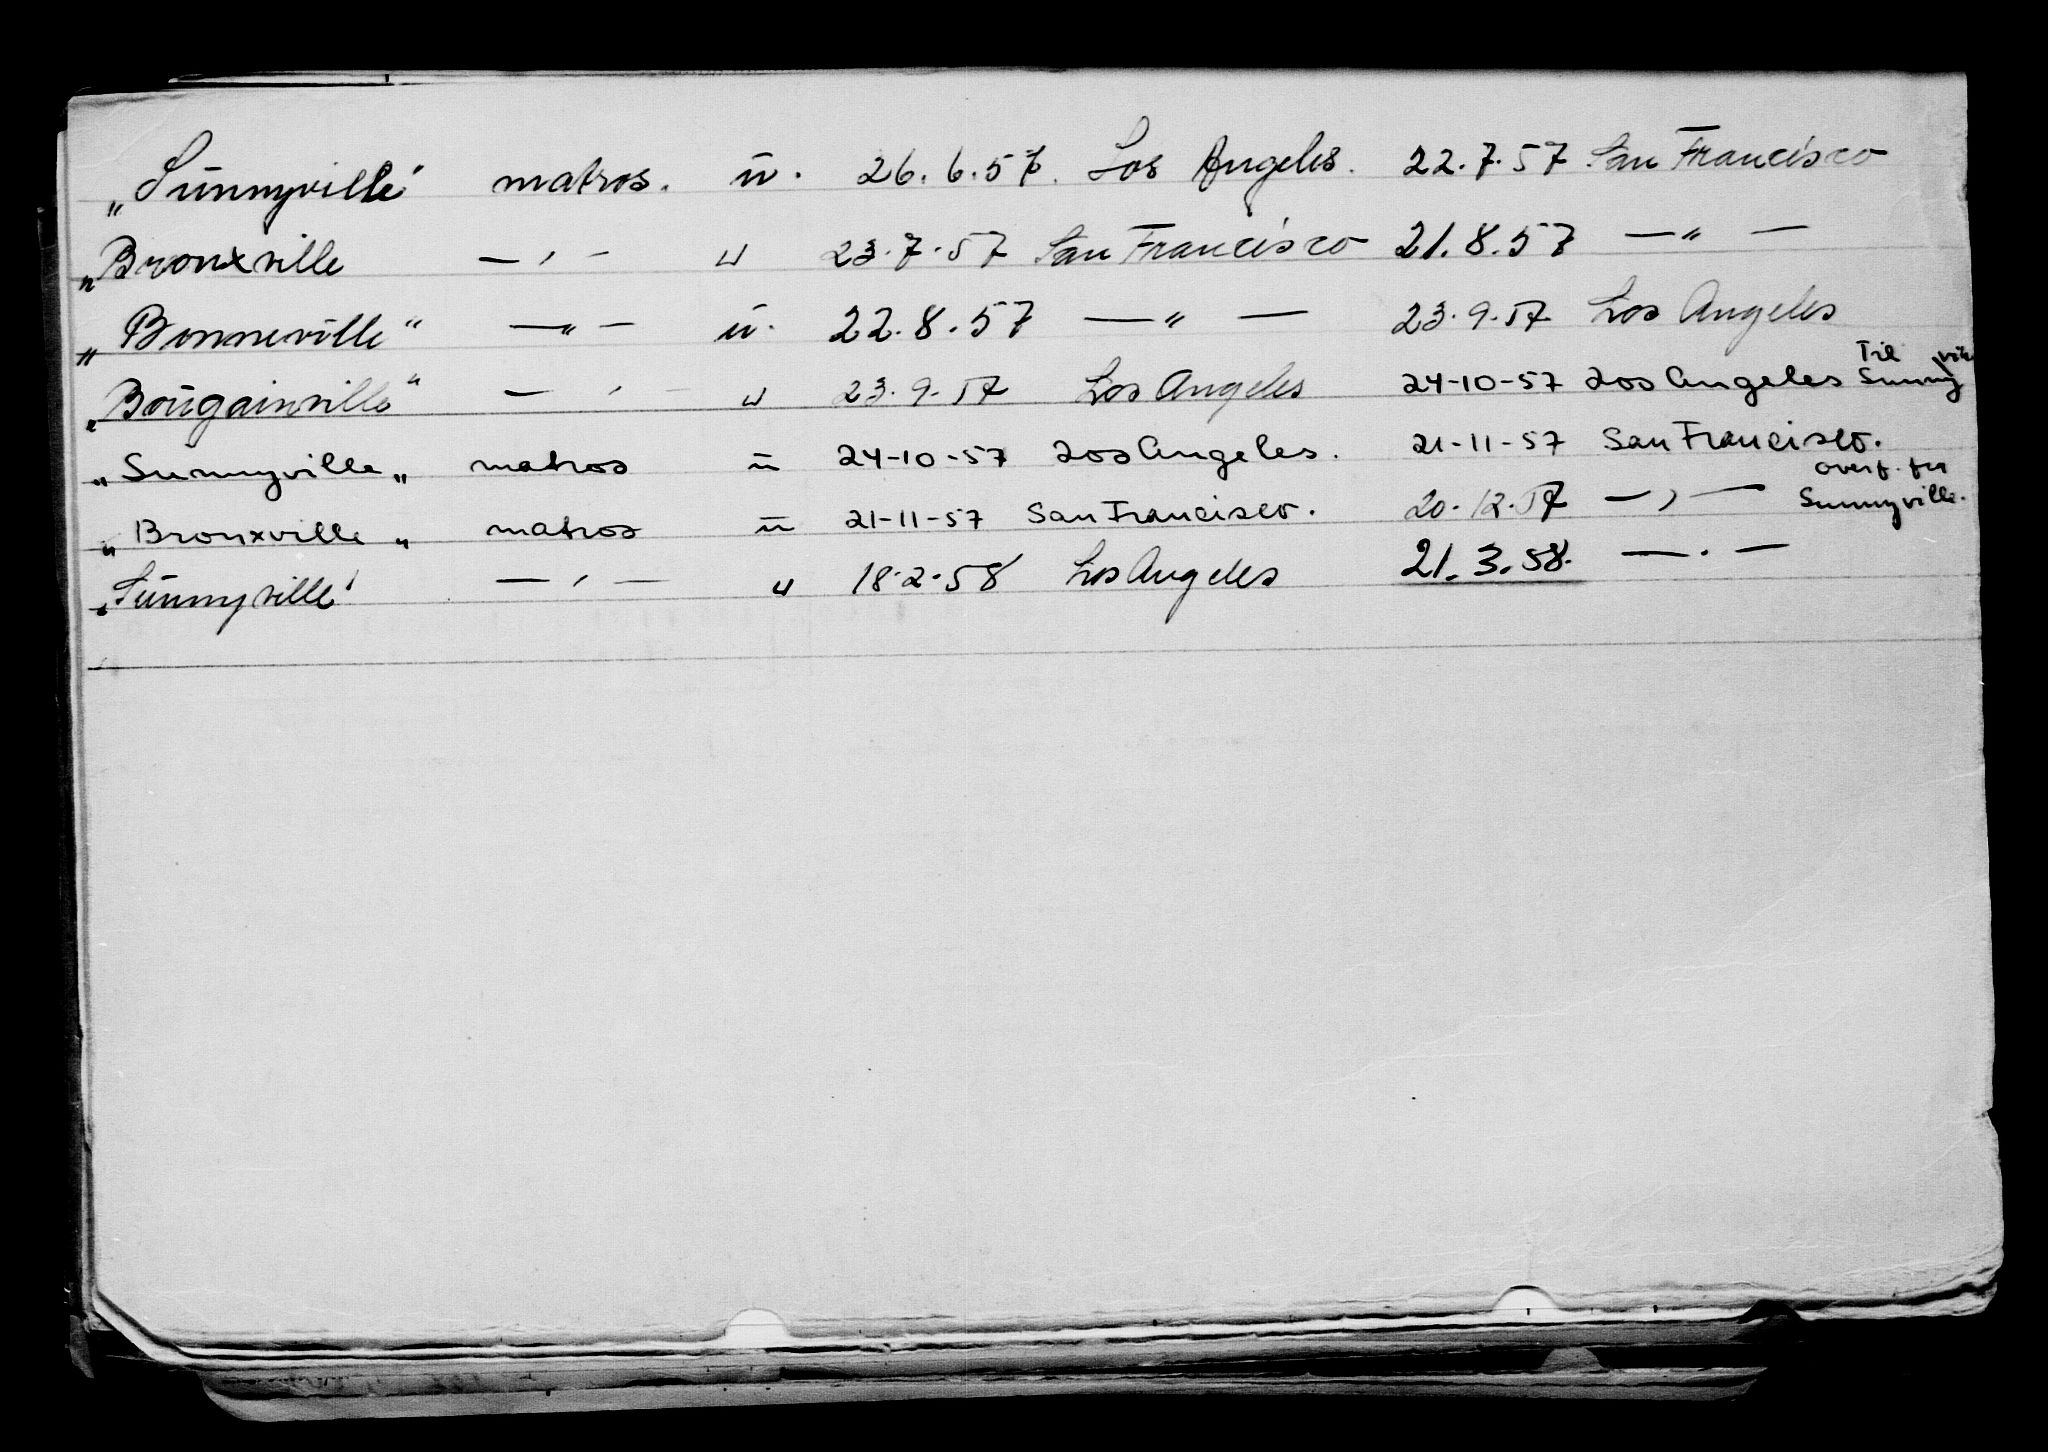 „Sunnyville" matros. u. 26.6.57. Los Angeles. 22.7.57 San Francisco
„Bronxville — " — u 23.7.57 San Francisco 21.8.57 — " —
„Bonneville" — " — u. 22.8.57 — " — 23.9.57 Los Angeles
„Bougainville" — " — u 23.9.57 Los Angeles 24-10-57 Los Angeles Til Sunnyville
„Sunnyville„ matros u 24-10-57 Los Angeles. 21-11-57 San Francisco.
„Bronxville„ matros u 21-11-57 San Francisco. 20.12.57 — " — overf. fra Sunnyville.
„Sunnyville" — " — u 18.2.58 Los Angeles 21.3.58. — " —